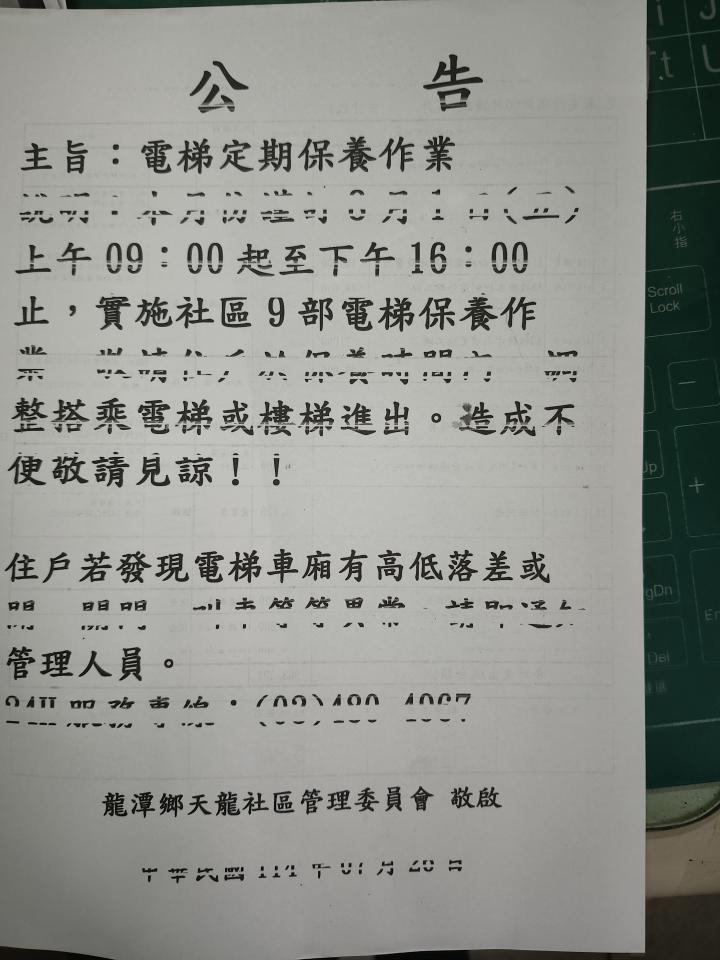 公告
主旨：電梯定期保養作業
說明：本月份謹訂 8 月 1 日(五)
上午 09：00 起至下午 16：00
止，實施社區 9 部電梯保養作
業 敬請住戶於保養時間內 調
整搭乘電梯或樓梯進出。造成不
便敬請見諒！！
住戶若發現電梯車廂有高低落差或
開 關門 叫車等等異常 請即通知
管理人員。
24H 服務專線：(03)480-4967
龍潭鄉天龍社區管理委員會 敬啟
中華民國 114 年 07 月 日
右小指
Scroll
Lock